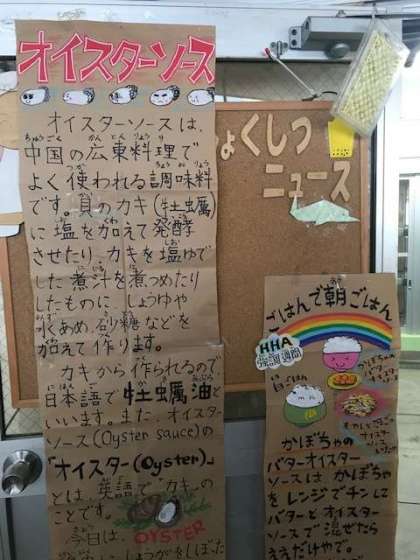 オイスターソース
オイスターソースは、
中国の広東料理で
よく使われる調味料
です。貝のカキ(牡蠣)
に塩を加えて発酵
させたり、カキを塩ゆで
した煮汁を煮つめたり
したものに、しょうゆや
水あめ、砂糖などを
加えて作ります。
カキから作られるので
日本語で牡蠣油と
いいます。また、オイスター
ソース(Oyster sauce)の
「オイスター(Oyster)」
とは、英語で“カキ”の
ことです。
OYSTER
今日は、
しょうがをしぼった
ょくしつ
ニュース
ごはんで朝ごはん
HHA
強調週間
白ごはん
かぼちゃの
バター
かぼちゃの
バターオイスター
ソースは かぼちゃ
をレンジでチンして
バターとオイスター
ソースで混ぜたら